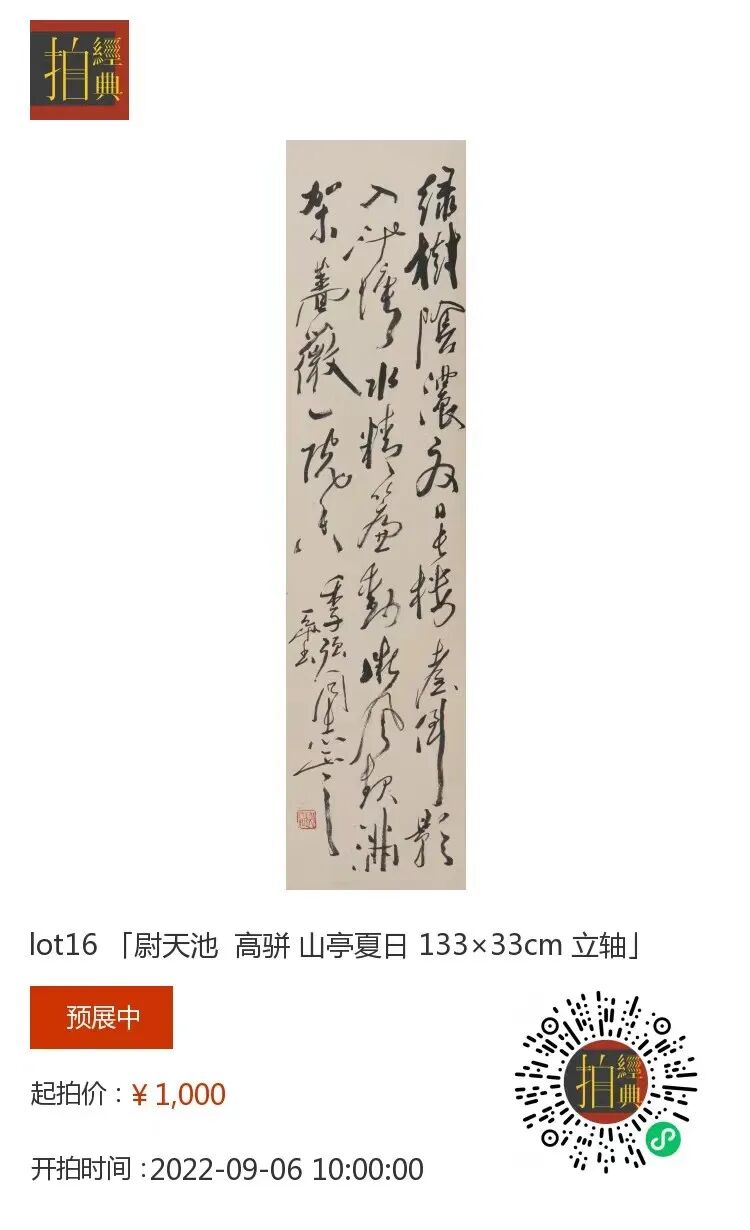 拍
經典
绿樹陰濃夏日长楼臺倒影
入池塘水精簾動微风起满
架薔薇一院香
季强同志正之
lot16 「尉天池 高骈 山亭夏日 133×33cm 立轴」
预展中
起拍价：¥ 1,000
开拍时间：2022-09-06 10:00:00
拍
經典